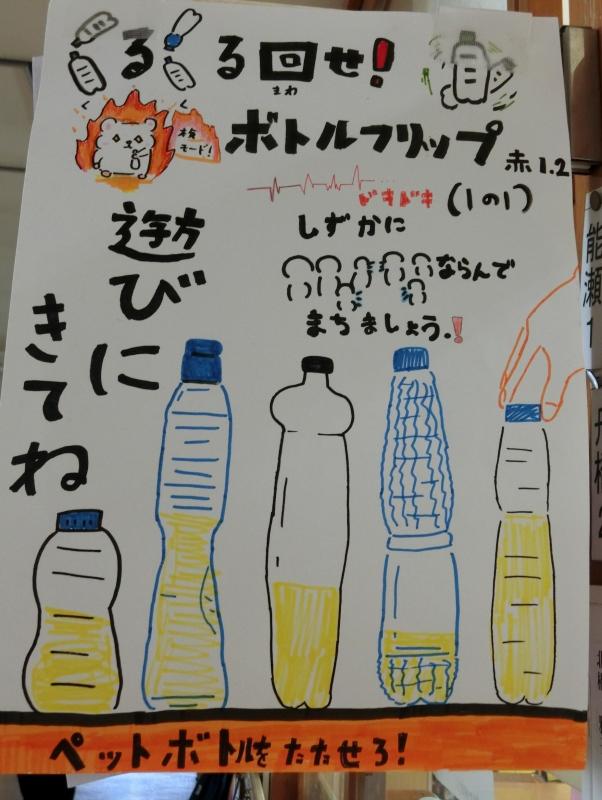 るる回せ!
まわ
本気モード!
ボトルフリップ
赤1.2
ドキドキ
(1の1)
しずかに
ならんで
まちましょう.!
遊びに
きてね
ペットボトルをたたせろ!
能瀬1